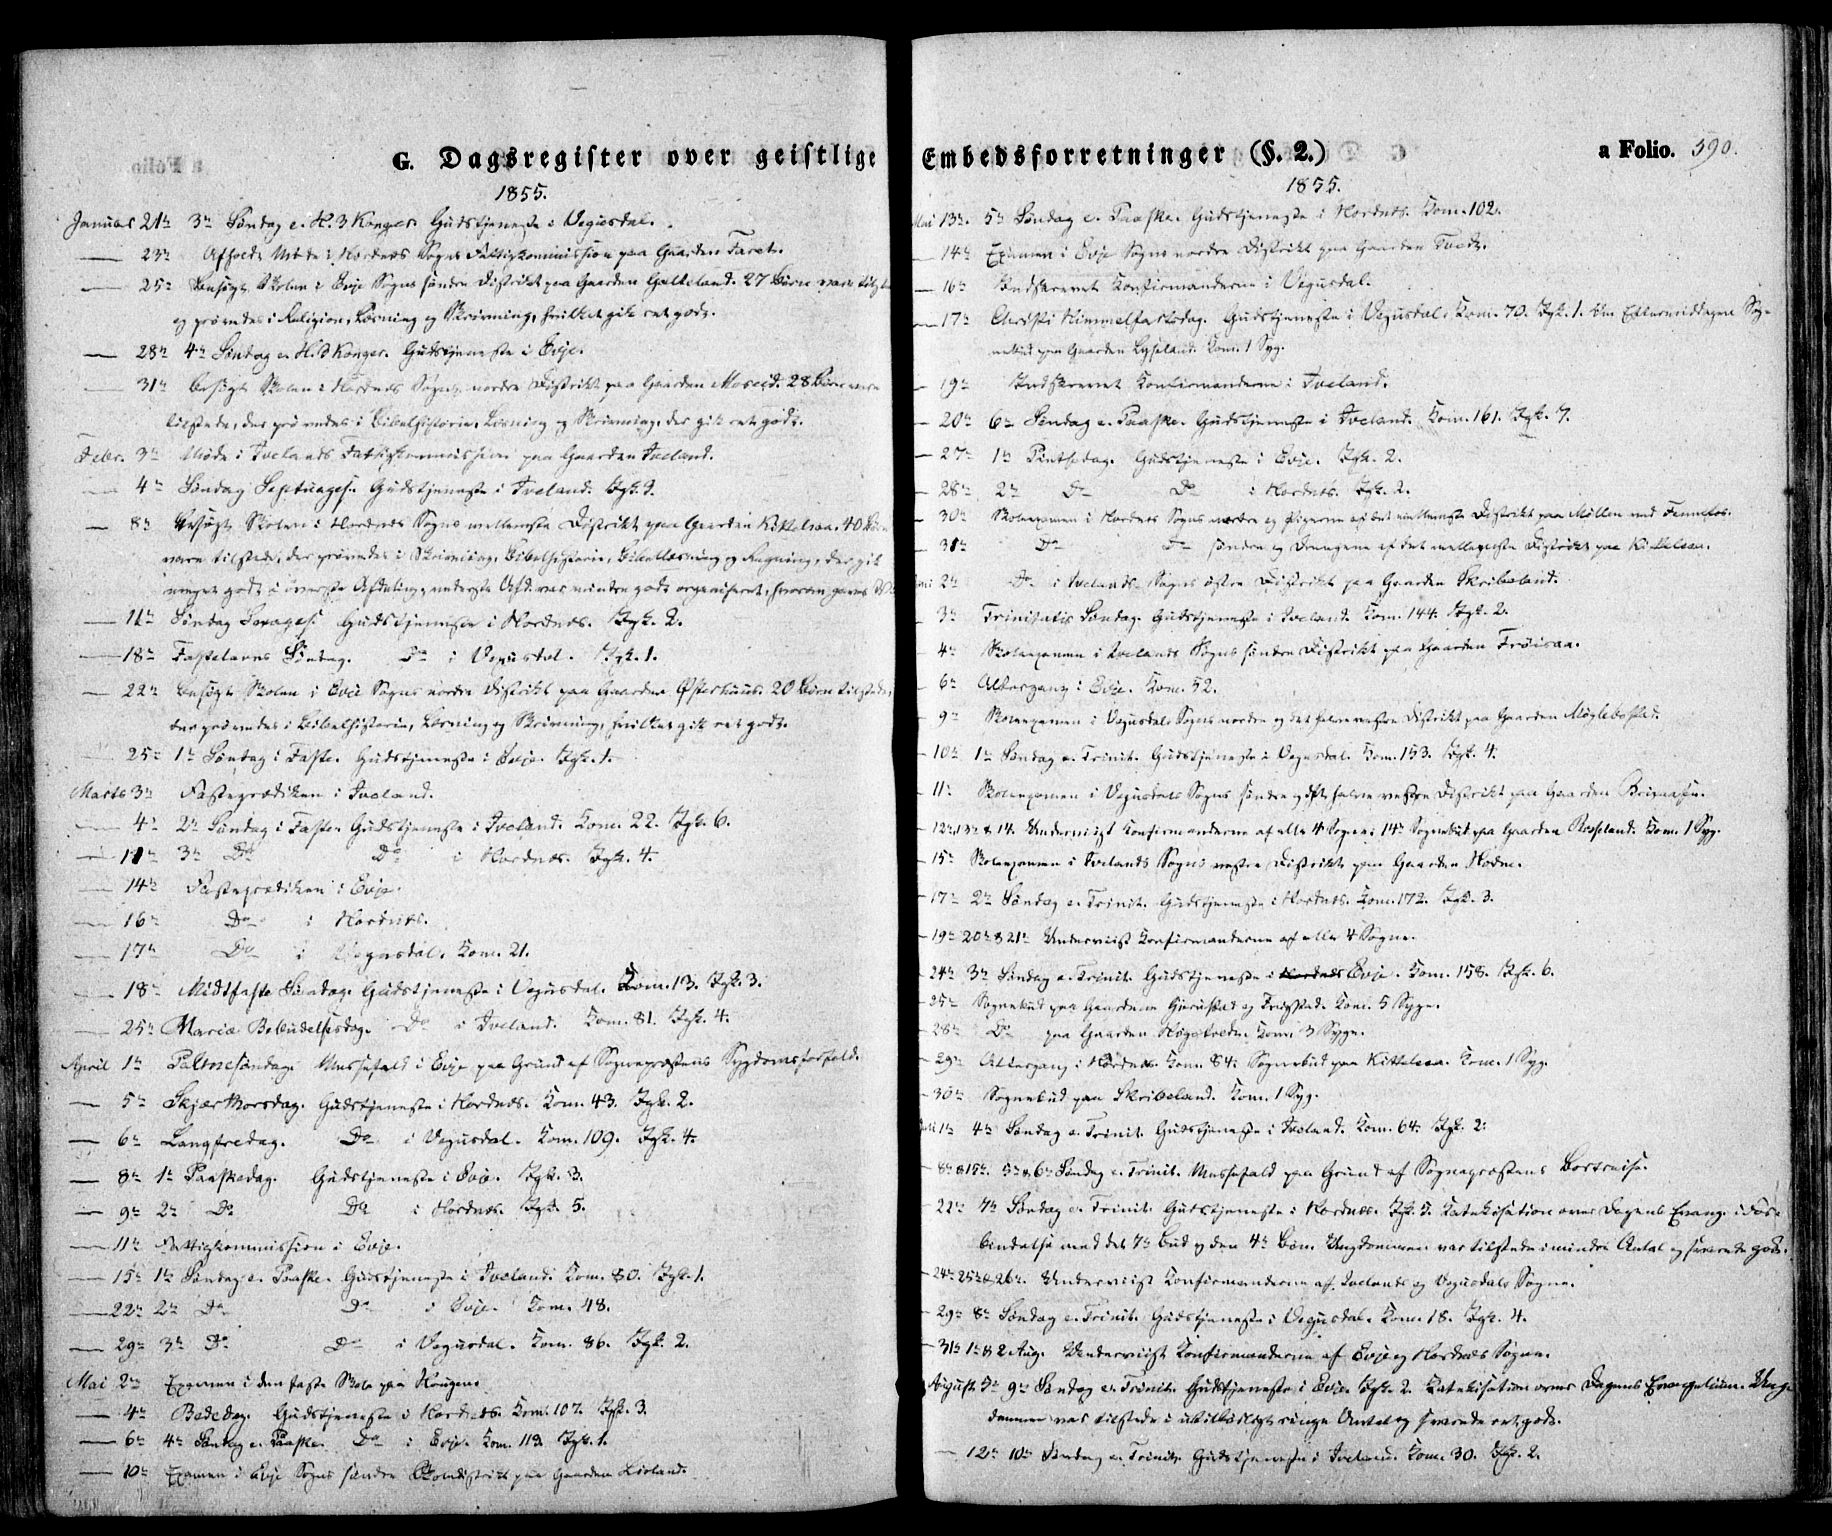 G. Dagsregister over geistlige
1855.
Januar 21de 3de Søndag e. H. 3 Konger. Gudstjeneste i Vegusdal.
— 23de Afholdt Møde i Hordnæs Sogns Fattigkommission paa Gaarden Faret.
— 25de Besøgt Skolen i Evje Sogns søndre Distrikt paa Gaarden Galteland. 27 Børn vare tilstede
og prøvedes i Religion, Læsning og Skrivning, hvilket gik ret godt.
— 28de 4de Søndag e. H. 3 Konger. Gudstjeneste i Evje.
— 31te Besøgt Skolen i Hordnæs Sogns nordre Distrikt paa Gaarden Moseid. 28 Børn vare
tilstede, der prøvedes i Bibelhistorie, Læsning og Skrivning, der gik ret godt.
Febr. 3de Møde i Ivelands Fattigkommission paa Gaarden Iveland.
— 4de Søndag Septuages. Gudstjeneste i Iveland. Igk. 9.
— 8de Besøgt Skolen i Hordnæs Sogns mellemste Distrikt paa Gaarden Kittelsaa. 40 Børn
vare tilstede, der prøvedes i Skrivning, Bibelhistorie, Bibellæsning og Regning, der gik
meget godt i øverste Afdeling, nederste Afd. var mindre godt organiseret, hvorom gaves
— 11te Søndag Sexages. Gudstjeneste i Hordnæs. Igk. 2.
— 18de Fastelavns Søndag. Do i Vegusdal. Igk. 1.
— 22de Besøgt Skolen i Evje Sogns nordre Distrikt paa Gaarden Østerhuus. 20 Børn tilstede,
der prøvedes i Bibelhistorie, Læsning og Skrivning, hvilket gik ret godt.
— 25de 1ste Søndag i Faste. Gudstjeneste i Evje. Igk. 1.
Marts 3de Fasteprædiken i Iveland.
— 4de 2den Søndag i Faste. Gudstjeneste i Iveland. Kom. 22. Igk. 6.
— 11te 3de Do Do i Hordnæs. Igk. 4.
— 14de Fasteprædiken i Evje.
— 16de Do i Hordnæs.
— 17de Do i Vegusdal. Kom. 21.
— 18de Midtfaste Søndag. Gudstjeneste i Vegusdal. Kom. 13. Igk. 3.
— 25de Mariæ Bebudelsesdag. Do i Iveland. Kom. 81. Igk. 4.
April 1ste Palmesøndag. Messefald i Evje paa Grund af Sognepræstens Sygdomsforfald.
— 5te Skjærthorsdag. Gudstjeneste i Hordnæs. Kom. 43. Igk. 2.
— 6te Langfredag. Do i Vegusdal. Kom. 109. Igk. 4.
— 8de 1ste Paaskedag. Gudstjeneste i Evje. Igk. 3.
— 9de 2den Do Do i Hordnæs. Igk. 5.
— 11te Fattigkommission i Evje.
— 15de 1ste Søndag e. Paaske. Gudstjeneste i Iveland. Kom. 80. Igk. 1.
— 22de 2den Do Do i Evje. Kom. 48.
— 29de 3de Do Do i Vegusdal. Kom. 86. Igk. 2.
Mai 2den Examen i den faste Skole paa Haugen.
— 4de Bededag. Gudstjeneste i Hordnæs. Kom. 107. Igk. 3.
— 6te 4de Søndag e. Paaske. Do i Evje. Kom. 113. Igk. 1.
— 10de Examen i Evje Sogns søndre Skoledistrikt paa Gaarden Lieland.
Embedsforretninger (§. 2.) a Folio. 590.
1855.
Mai 13de. 5te Søndag e. Paaske. Gudstjeneste i Hordnæs. Kom. 102.
— 14de Examen i Evje Sogns nordre Distrikt paa Gaarden Tveit.
— 16de Indskrevet Konfirmanderne i Vegusdal.
— 17de Christi Himmelfartsdag. Gudstjeneste i Vegusdal. Kom. 70. Igk. 1. Om Eftermiddagen Sog-
nebud paa Gaarden Lyseland. Kom. 1 Syg.
— 19de Indskrevet Konfirmanderne i Iveland.
— 20de 6te Søndag e. Paaske. Gudstjeneste i Iveland. Kom. 161. Igk. 7.
— 27de 1ste Pintsedag. Gudstjeneste i Evje. Igk. 2.
— 28de 2den Do Do i Hordnæs. Igk. 2.
— 30te Skoleexamen i Hordnæs Sogns nordre og Pigerne af det mellemste Distrikt paa Møllen ved Fennefos.
— 31te Do Do søndre og Drengene af det mellemste Distrikt paa Kittelsaa.
Juni 2den Do i Ivelands Sogns østre Distrikt paa Gaarden Skribeland.
— 3de Trinitatis Søndag. Gudstjeneste i Iveland. Kom. 144. Igk. 2.
— 4de Skoleexamen i Ivelands Sogns søndre Distrikt paa Gaarden Frøisaa.
— 6te Altergang i Evje. Kom. 52.
— 9de Skoleexamen i Vegusdals Sogns nordre og det halve vestre Distrikt paa Gaarden Møglebostad.
— 10de 1ste Søndag e. Trinit. Gudstjeneste i Vegusdal. Kom. 153. Igk. 4.
— 11te Skoleexamen i Vegusdals Sogns søndre og det halve vestre Distrikt paa Gaarden
— 12te, 13de & 14. Underviist Konfirmanderne af alle 4 Sogne. 14de Sognebud paa Gaarden Roseland. Kom. 1 Syg.
— 15de Skoleexamen i Ivelands Sogns vestre Distrikt paa Gaarden Hodne.
— 17de 2den Søndag e. Trinit. Gudstjeneste i Hordnæs. Kom. 172. Igk. 3.
— 19de 20de & 21de Underviist Konfirmanderne af alle 4 Sogne.
— 24de 3de Søndag e. Trinit. Gudstjeneste i Hordnæs Evje. Kom. 158. Igk. 6.
— 25de Sognebud paa Gaardene Gjerustad og Frigstad. Kom. 5 Syge.
— 28de Do paa Gaarden Høgetvedt. Kom. 3 Syge.
— 29de Altergang i Hordnæs. Kom. 84. Sognebud paa Kittelsaa. Kom. 1 Syg.
— 30te Sognebud paa Skribeland. Kom. 1 Syg.
Juli 1ste 4de Søndag e. Trinit. Gudstjeneste i Iveland. Kom. 64. Igk. 2.
— 8de & 15de. 5te & 6te Søndag e. Trinit. Messefald paa Grund af Sognepræstens Bortreise.
— 22de 7de Søndag e. Trinit. Gudstjeneste i Hordnæs. Igk. 5. Katekisation over Dagens Evang. i For-
bindelse med det 7de Bud og den 4de Bøn. Ungdommen var tilstede i mindre Antal og svarede godt.
— 24de 25de & 26de. Underviist Konfirmanderne af Ivelands og Vegusdals Sogne.
— 29de 8de Søndag e. Trinit. Gudstjeneste i Vegusdal. Kom. 18. Igk. 4.
— 31te 1ste & 2 Aug. Underviist Konfirmanderne af Evje og Hordnæs Sogne.
August 5te 9de Søndag e. Trinit. Gudstjeneste i Evje. Igk. 2. Katekisation over Dagens Evangelium. Ung-
dommen var tilstede i ubilligt ringe Antal og svarede ret godt.
— 12te 10de Søndag e. Trinit. Gudstjeneste i Iveland. Kom. 30. Igk. 2.